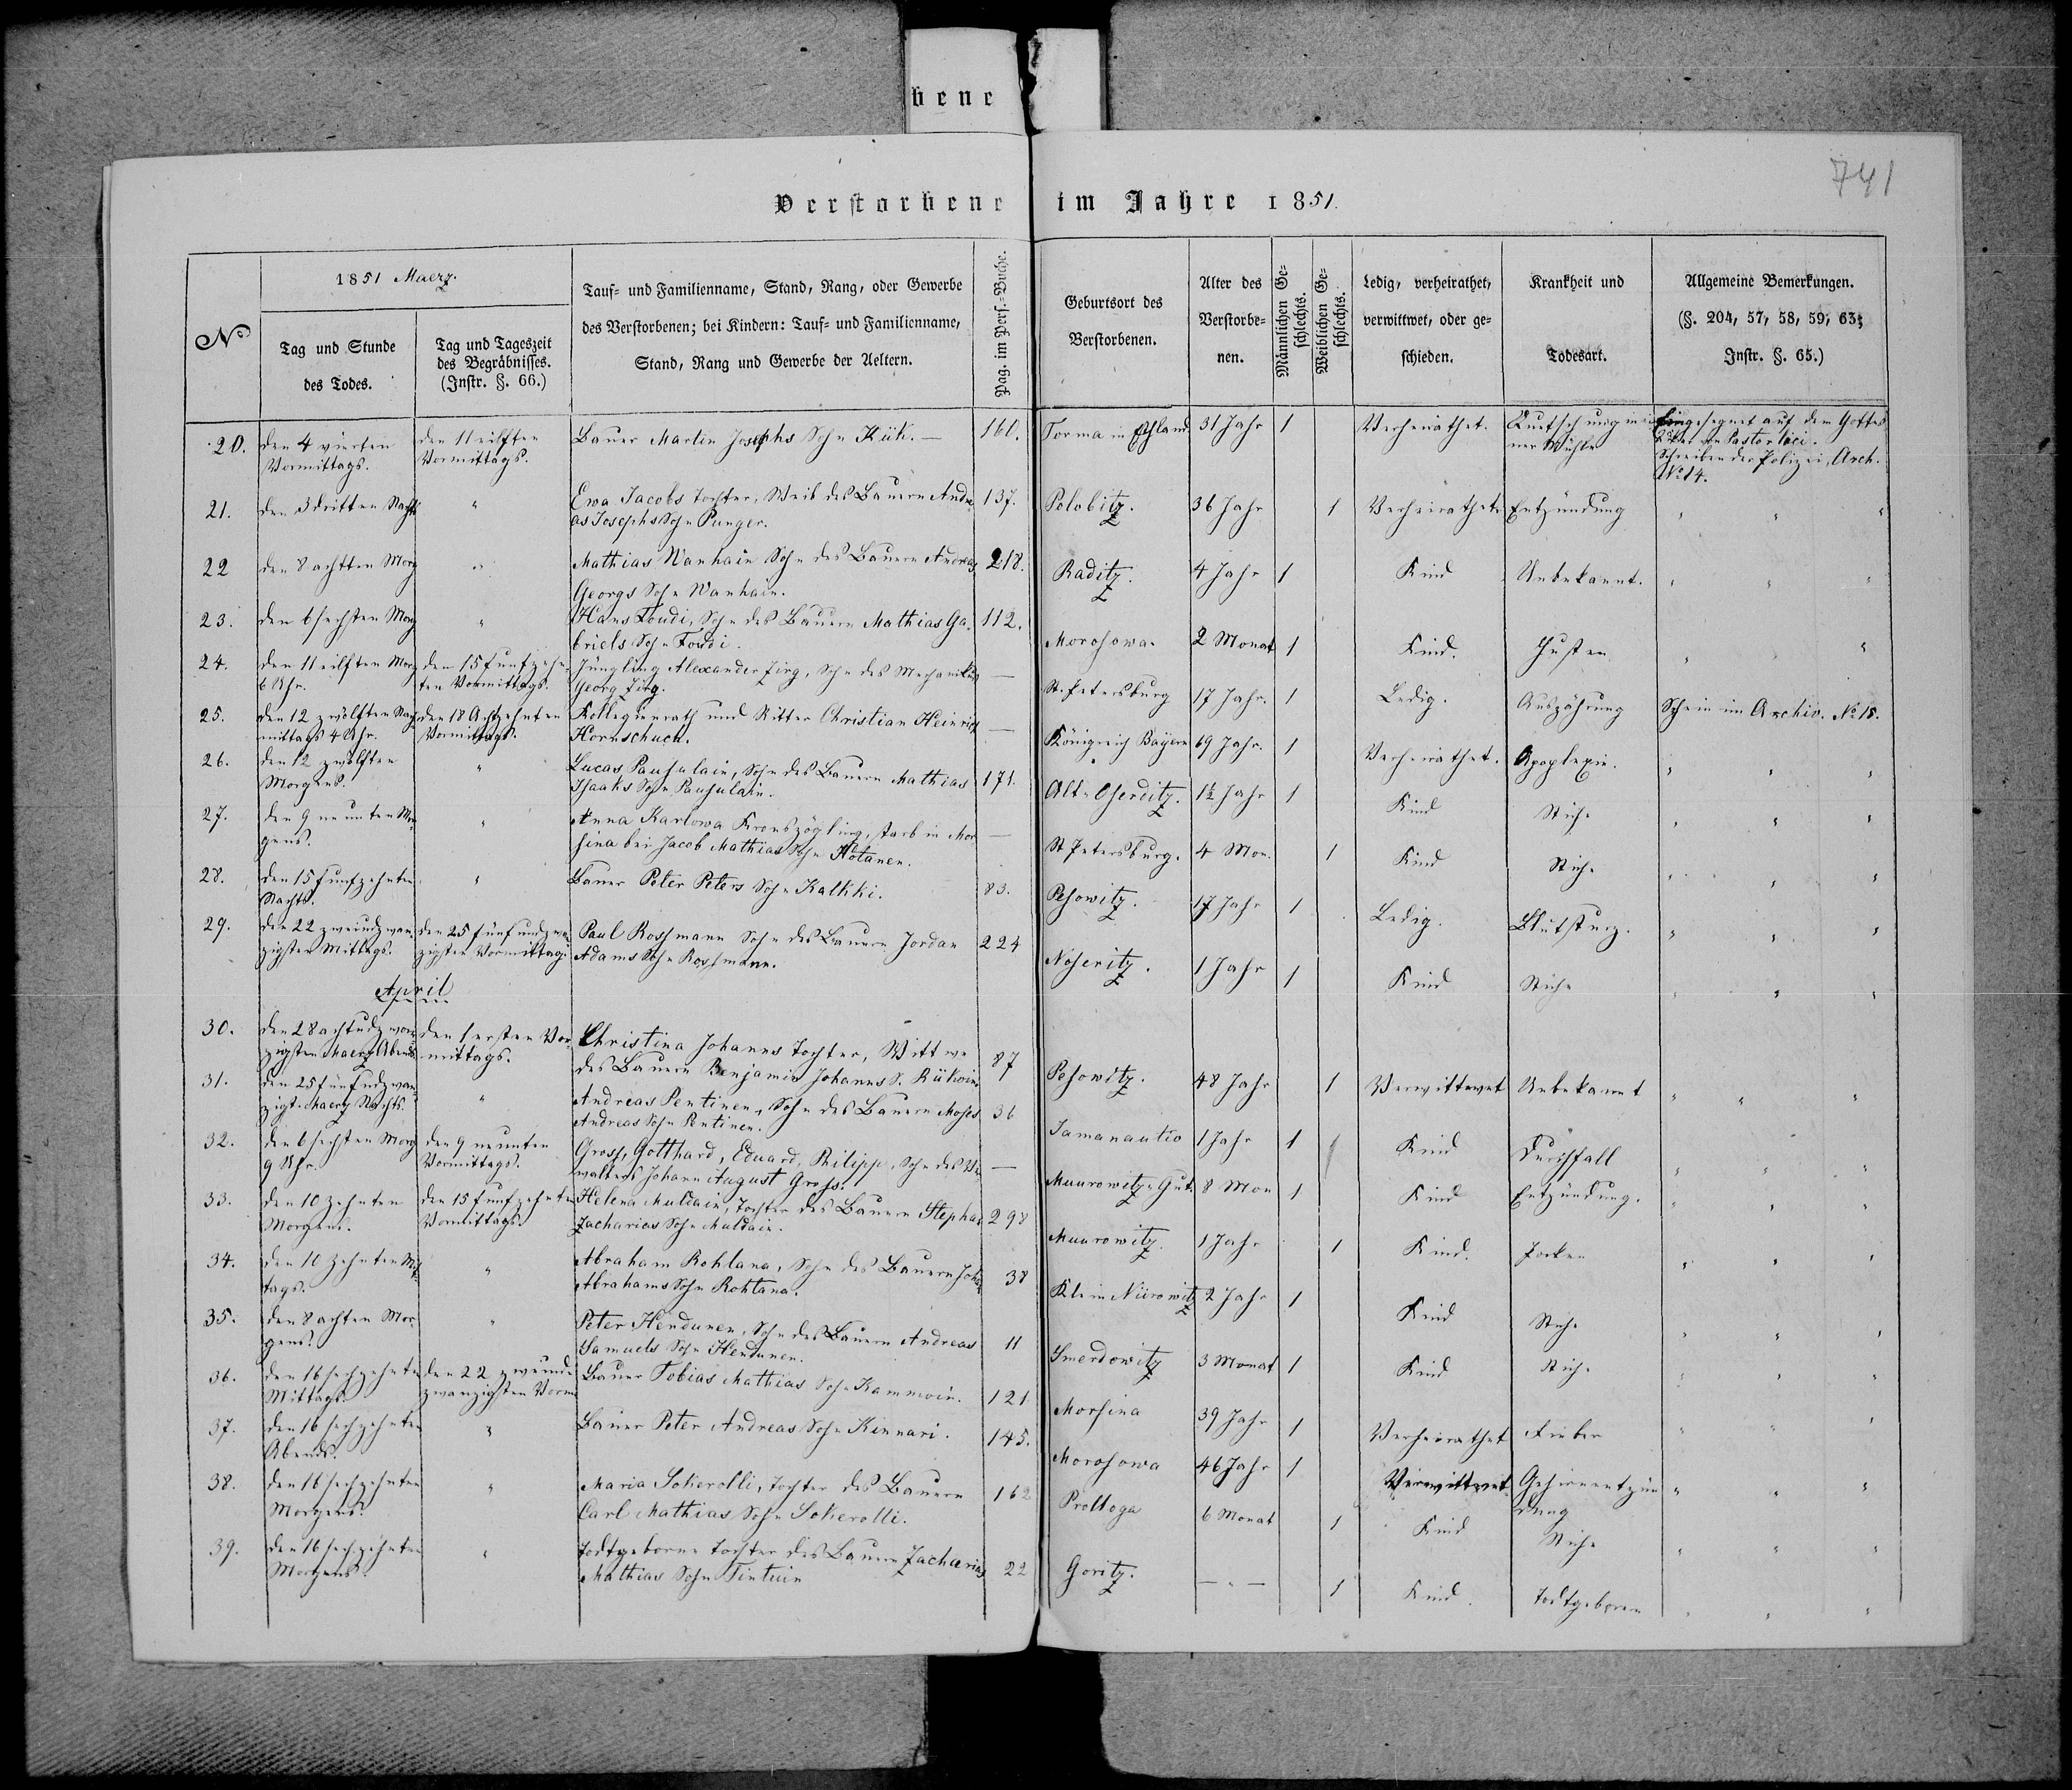 bene
741
Verstorbene im Jahre 1851.
No
1851 Maerz.
Tag und Stunde
des Todes.
Tag und Tageszeit
des Begräbnisses.
(Instr. §. 66.)
Tauf- und Familienname, Stand, Rang, oder Gewerbe
des Verstorbenen; bei Kindern: Tauf- und Familienname,
Stand, Rang und Gewerbe der Aeltern.
Pag. im Pers.-Buche.
Geburtsort des
Verstorbenen.
Alter des
Verstorbe-
nen.
Männlichen Ge-
schlechts.
Weiblichen Ge-
schlechts.
Ledig, verheirathet,
verwittwet, oder ge-
schieden.
Krankheit und
Todesart.
Allgemeine Bemerkungen.
(§. 204, 57, 58, 59, 63;
Instr. §. 65.)
20. den 4 vierten den 11 eilften Bauer Martin Josephs Sohn Kük. — 160. Torma in Ehstland 31 Jahr 1 Verheirathet. Quetschung in ei- Eingesegnet auf dem Gottes
Vormittags. Vormittags. ner Mühle von Pastor
Schreiben der Polizei, Arch.
No 14.
21. den 3 dritten Nachts " Ewa Jacobs Tochter, Weib des Bauern Andre- 137. Polobitz. 36 Jahr 1 Verheirathet Entzündung " " "
as Josephs Sohn Punger.
22 den 8 achten Morg " Mathias Wanhain Sohn des Bauern Andreas 218. Raditz. 4 Jahr 1 Kind Unbekannt. " " "
Georgs Sohn Wanhain.
23. den 6 sechsten Morg " Hans Toudi, Sohn des Bauern Mathias Ga- 112. Morosowa. 2 Monat 1 Kind. Husten " " "
briels Sohn Toudi.
24. den 11 eilften Morg den 15 funfzehn- Jüngling Alexander Zirg, Sohn des Mechanikus — St. Petersburg 17 Jahr. 1 Ledig. Auszehrung Schein im Archiv. No 15.
6 Uhr. ten Vormittags. Georg Zirg.
25. den 12 zwölften Nach- den 18 Achtzehnten Kollegienrath und Ritter Christian Heinrich — Königreich Bayern 69 Jahr. 1 Verheirathet. Apoplexie. " " "
mittags 4 Uhr. Vormittags. Hornschuch.
26. den 12 zwölften " Lucas Pausulain, Sohn des Bauern Mathias 171. Alt-Cherditz. 1½ Jahr 1 Kind Stich " " "
Morgens. Isaaks Sohn Pausulain.
27. den 9 neunten Mor- " Anna Karlowa Kronszögling, starb in Mor- — St Petersburg. 4 Mon. 1 Kind Stich " " "
gens. sina bei Jacob Mathias Sohn Hotanen.
28. den 15 funfzehnten " Bauer Peter Peters Sohn Kalkki. 83. Pesowitz. 17 Jahr 1 Ledig. Blutsturz. " " "
Nachts.
29. den 22 zweiundzwan- den 25 fünfundzwan- Paul Rossmann Sohn des Bauern Jordan 224 Noseritz. 1 Jahr 1 Kind Stich " " "
zigsten Mittags. zigsten Vormittag Adams Sohn Rossmann.
April
30. den 28 achtudzwan- den 1 ersten Vor- Christina Johanns Tochter, Wittwe 87 Pesowitz. 48 Jahr 1 Verwittwet Unbekannt " " "
zigsten Maerz Abends mittags. des Bauern Benjamin Johanns S.
31. den 25 fünfudzwan- " Andreas Pentinen, Sohn des Bauern Moses 36 Jamanautio 1 Jahr 1 Kind Durchfall " " "
zigt. Maerz Nachts. Andreas Sohn Pentinen.
32. den 6 sechsten Morg den 9 neunten Gross, Gotthard, Eduard, Philipp, Sohn des Ver- — Muurowitz-Gut. 8 Mon 1 Kind Entzündung. " " "
9 Uhr. Vormittags. walters Johann August Gross.
33. den 10 zehnten den 15 funfzehnten Helena Muldain, Tochter des Bauern Stephan 298 Muurowitz. 1 Jahr 1 Kind. Pocken " " "
Morgens. Vormittags. Zacharias Sohn Muldain.
34. den 10 zehnten Mit- " Abraham Rohlana, Sohn des Bauern Joh 38 Klein Niirowitz 2 Jahr 1 Kind Stich " " "
tags. Abrahams Sohn Rohlana.
35. den 8 achten Mor- " Peter Hendunen, Sohn des Bauern Andreas 11 Smerdowitz 3 Monat 1 Kind Stich " " "
gens. Samuels Sohn Hendunen.
36. den 16 sechzehnten den 22 zweiund- Bauer Tobias Mathias Sohn Kammoin. 121 Morsina 39 Jahr 1 Verheirathet Fieber " " "
Mittags. zwanzigsten Vorm
37. den 16 sechzehnten " Bauer Peter Andreas Sohn Kinnari. 145. Morosowa 46 Jahr 1 Verwittwet Gehirnentzün- " " "
Abends. dung
38. den 16 sechzehnten " Maria Sokerolli, Tochter des Bauern 162 Proltoga 6 Monat 1 Kind Stich " " "
Morgens. Carl Mathias Sohn Sokerolli.
39. den 16 sechzehnten " Todtgeborne Tochter des Bauern Zacharias 22 Goritz. — " — 1 Kind. Todtgeboren " " "
Morgens. Mathias Sohn Tintuin